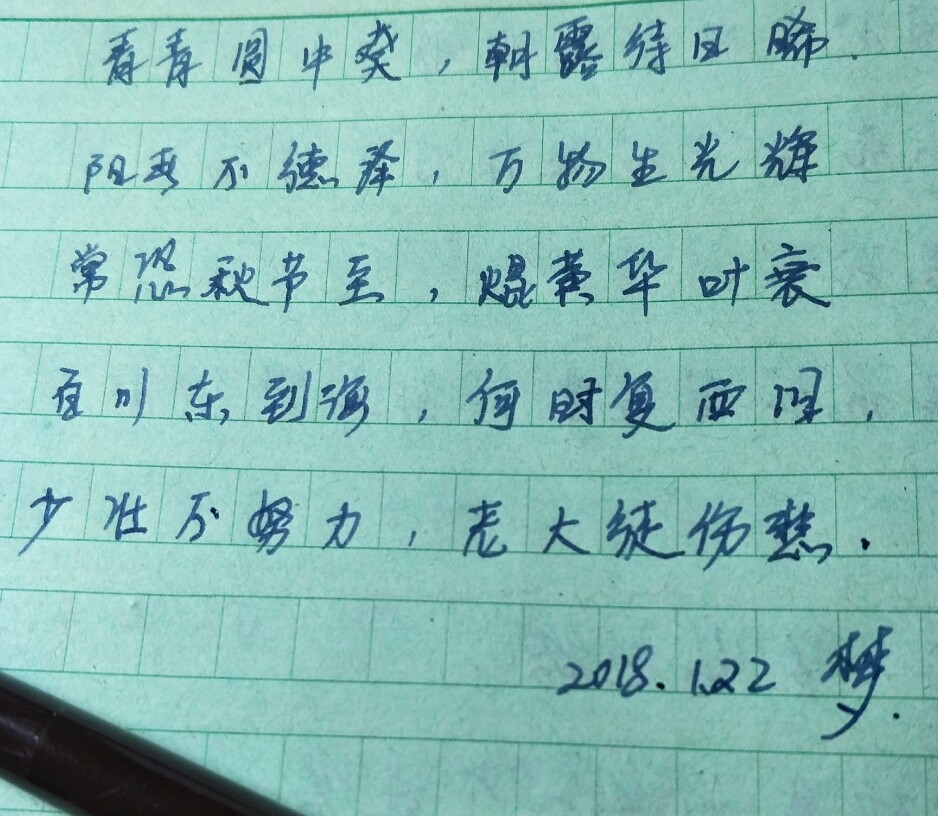 青青圆中葵，朝露待日晞.
阳春不德泽，万物生光辉
常恐秋节至，焜荣华叶衰
百川东到海，何时复西归，
少壮不努力，老大徒伤悲.
2018.1.22 梦.